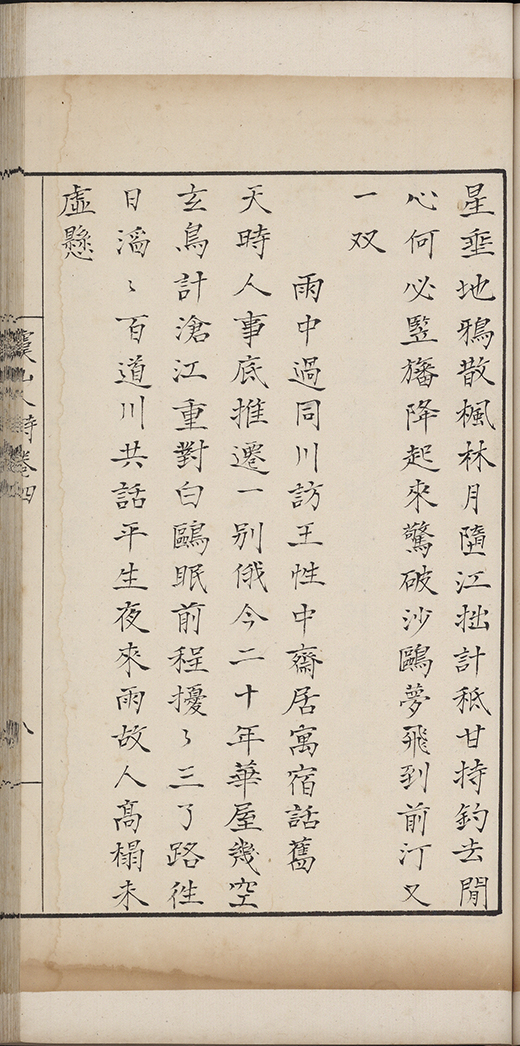 星垂地鴉散楓林月墮江拙計秪甘持釣去閒
心何必豎旛降起來驚破沙鷗夢飛到前汀又
一双
雨中過同川訪王性中齋居寓宿話舊
天時人事底推遷一别俄今二十年華屋幾空
玄鳥計滄江重對白鷗眠前程擾〻三了路徃
日滔〻百道川共話平生夜來雨故人髙榻未
虛懸
人詩卷四
八